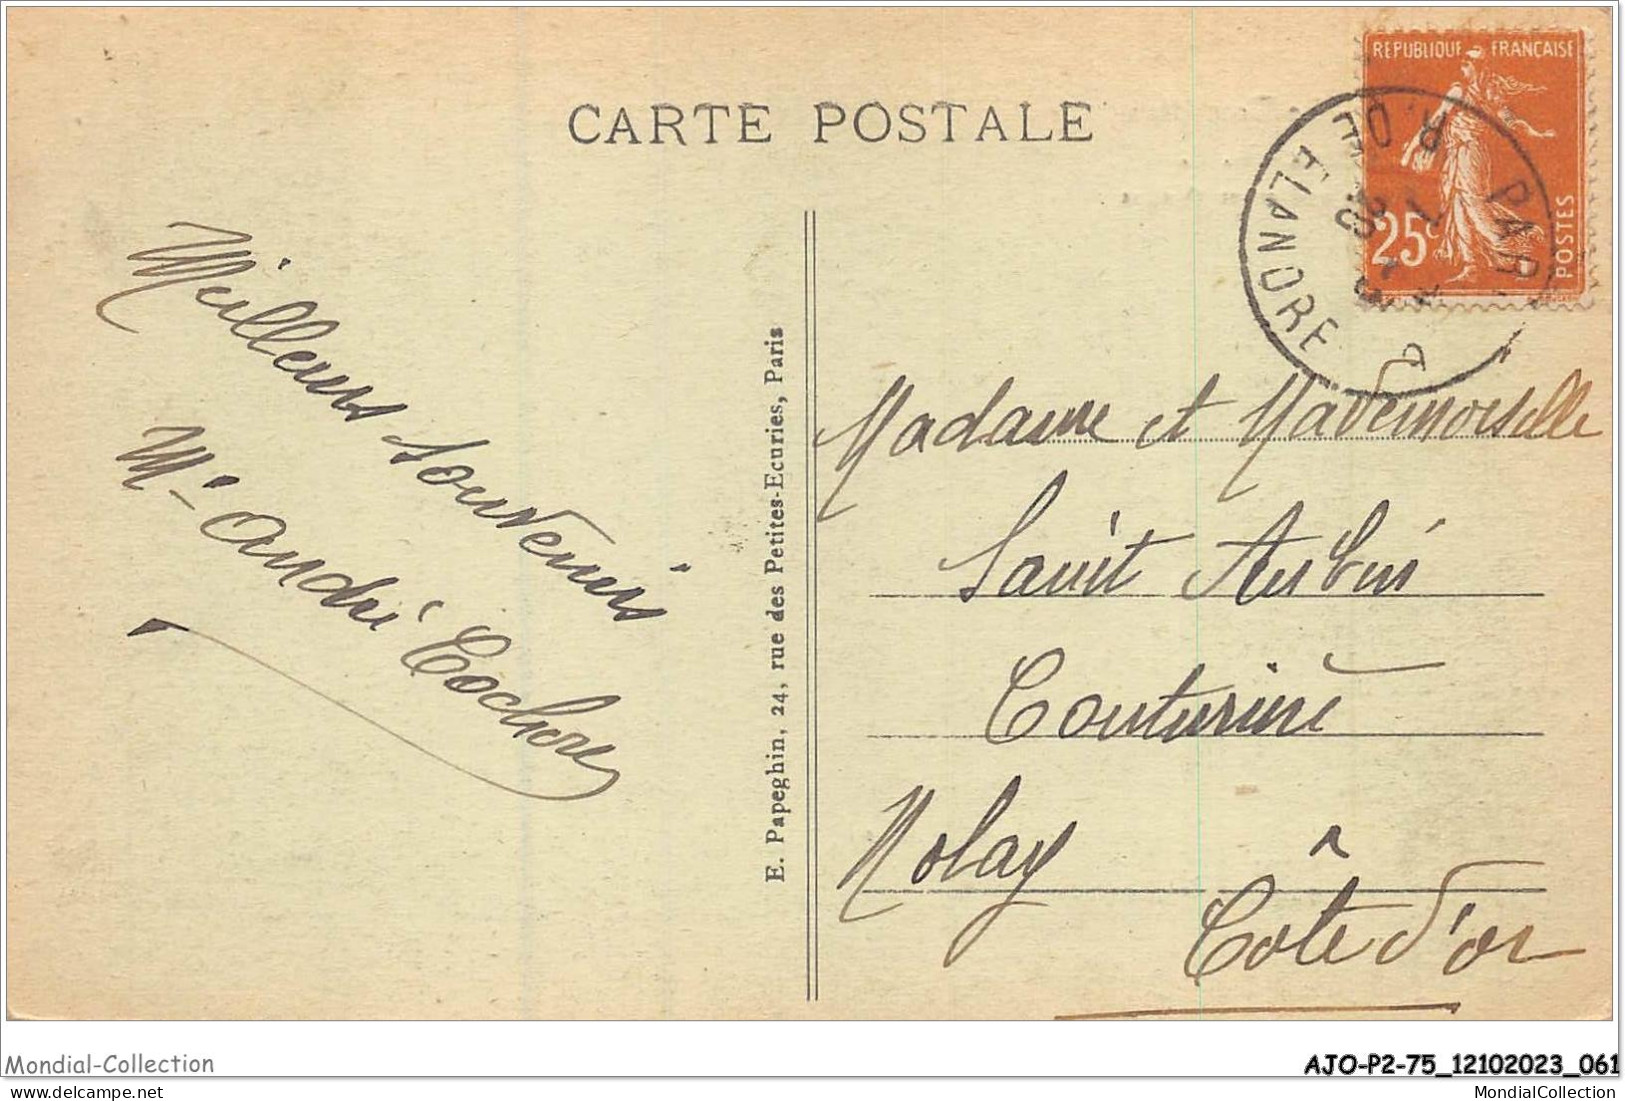 CARTE POSTALE
REPUBLIQUE FRANCAISE
25c
POSTES
R. DE
PAR
Meilleurs souvenirs
Mr André Cochon
E. Papeghin, 24, rue des Petites-Ecuries, Paris
Madame et Mademoiselle
Saint Aubin
Couturière
Molay
Côte d'or
Mondial-Collection
AJO-P2-75_12102023_061
MondialCollection